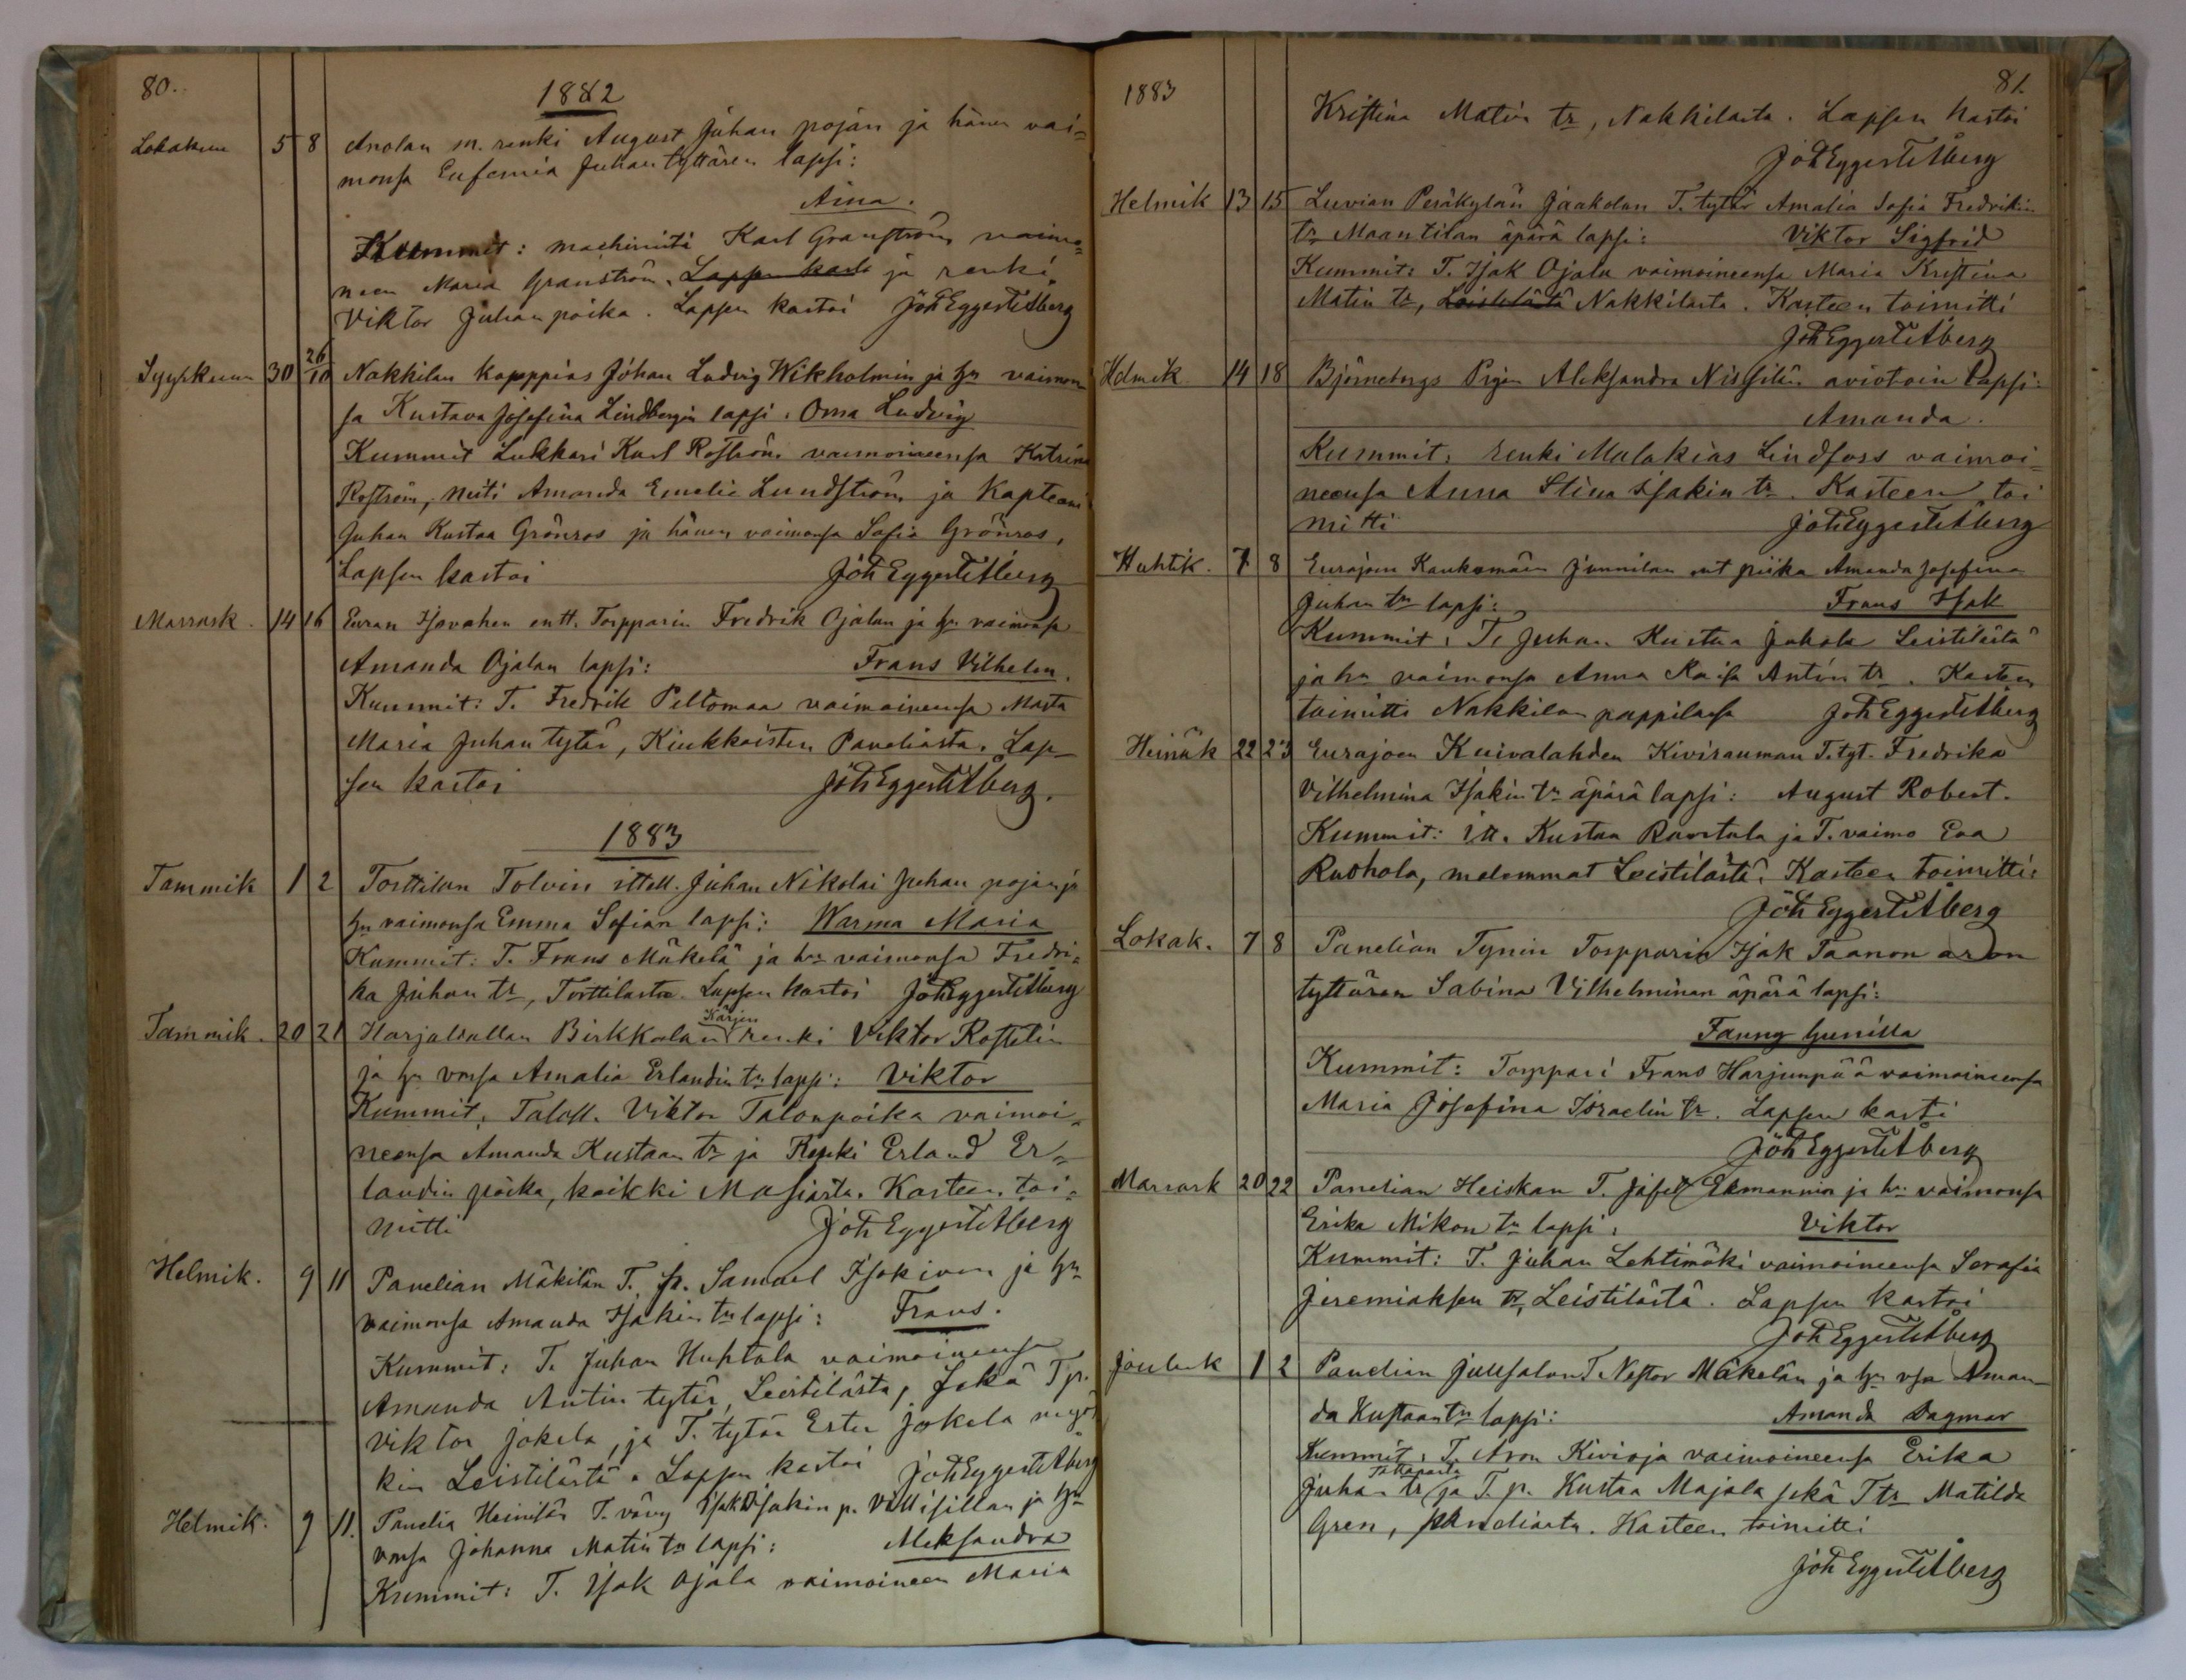 80.
1882
Lokakuu 5 8 Anolan m. renki August Juhan pojan ja hänen vai=
monsa Eufemia Juhan tyttären lapsi:
Aina.
Kummit: machinisti Karl Granström vaimo=
neen Maria Granström. Lapsen kast ja renki
Viktor Juhanpoika. Lapsen kastoi Joh Eggert Åberg
Syyskuun 30 26/10 Nakkilan kauppias Johan Ludvig Wikholmin ja hn vaimon
sa Kustava Josefina Lindbergin lapsi. Oma Ludvig
Kummit Lukkari Karl Roström vaimoineensa Katrina
Roström, neiti Amanda Emelie Lundström ja Kapteeni
Juhan Kustaa Grönros ja hänen vaimonsa Sofia Grönros,
Lapsen kastoi Joh Eggert Åberg
Marrask. 14 16 Euran entt. Torpparin Fredrik Ojalan ja hn vaimonsa
Amanda Ojalan lapsi: Frans Vilhelm.
Kummit: T. Fredrik Peltomaa vaimoineensa Marta
Maria Juhan tytär, Kiukkaisten Paneliasta. Lap
sen kastoi Joh Eggert Åberg.
1883
Tammik 1 2 Torttilan Tolvin ittell. Juhan Nikolai Juhan pojan ja
hn vaimonsa Emma Sofian lapsi: Warma Maria
Kummit: T. Frans Mäkelä ja hn vaimonsa Fredri=
ka Juhan tr, Torttilasta. Lapsen kastoi Joh Eggert Åberg
Tammik. 20 21 Harjavallan Birkkalan Kärjen renki Viktor Rostelin
ja hn vmsa Amalia Erlandin tn lapsi: Viktor
Kummit. Taloll. Viktor Talonpoika vaimoi=
neensa Amanda Kustaan tr ja Renki Erland Er=
landin poika, kaikki Masiasta. Kasteen toi=
mitti Joh Eggert Åberg
Helmik. 9 11 Panelian Mäkilän T. Samuel Isakin ja hn
vaimonsa Amanda Isakin tn lapsi: Frans.
Kummit: T. Juhan Huhtala vaimoineensa
Amanda Antin tytär, Leistilästä, Sekä T p.
Viktor Jokela, ja T. tytär Ester Jokela myös
kin Leistilästä. Lapsen kastoi Joh Eggert Åberg
Helmik. 9 11. Panelia Heinilän T. vävy Isak Isakin p. ja hn
vmsa Johanna Matin tn lapsi: Aleksandra
Kummit: T. Isak Ojala vaimoineen Maria
1883
81.
Kristina Matin tr, Nakkilasta. Lapsen kastoi
Joh Eggert Åberg
Helmik 13 15 Luvian Peräkylän Jaakolan T. tytär Amalia Sofia Fredrikin
tr Maantilan äpärä lapsi: Viktor Sigfrid
Kummit: T. Isak Ojala vaimoineensa Maria Kristina
Matin tr, Leistilästä Nakkilasta. Kasteen toimitti
Joh Eggert Åberg
Helmik. 14 18 Björneborgs Pigan Aleksandra Nissilän aviotoin lapsi:
Amanda.
Kummit: renki Malakias Lindfors vaimoi=
neensa Anna Stina Isakin tr. Kasteen toi
mitti Joh Eggert Åberg
Huhtik. 7 8 Eurajoen Kaukomäen Junnilan ent piika Amanda Josefina
Juhan tn lapsi: Frans Isak
Kummit: T. Juhan Kustaa Jokela Leistilästä
ja hn vaimonsa Anna Kaisa Antin tr. Kasteen
toimitti Nakkilan pappilassa Joh Eggert Åberg
Heinäk 22 23 Eurajoen Kuivalahden Kivirauman T. tyt. Fredrika
Vilhelmina Isakin tn äpärä lapsi: August Robert.
Kummit: itt. Kustaa Rantala ja T. vaimo Eva
Ruohola, molemmat Leistilästä. Kasteen toimitti:
Joh Eggert Åberg
Lokak. 7 8 Panelian Tynin Torpparin Isak Taanon aron
tyttären Sabina Vilhelminan äpärä lapsi:
Fanny Gunilla
Kummit: Torppari Frans Harjunpää vaimoineensa
Maria Josefina Israelin tr. Lapsen kasti
Joh Eggert Åberg
Marrask 20 22 Panelian Heiskan T. Jafet Ekmannin ja hn vaimonsa
Erika Mikon tn lapsi: Viktor
Kummit: T. Juhan Lehtimäki vaimoineensa Serafia
Jeremiaksen tr, Leistilästä. Lapsen kastoi
Joh Eggert Åberg
Jouluk 1 2 Panelian Juusalan T. Nestor Mäkelän ja hn vsa Aman=
da Kustaan tn lapsi: Amanda Dagmar
Kummit: T. Aron Kivioja vaimoineensa Erika
Juhan tr ja T. p. Kustaa Majala sekä T tr Matilda
Gren, Paneliasta. Kasteen toimitti
Joh Eggert Åberg